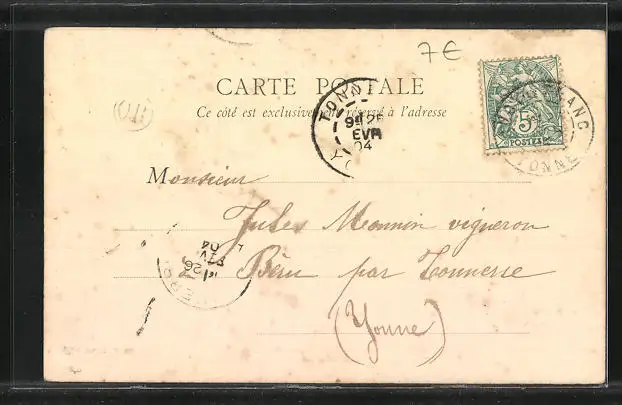 7€
CARTE POSTALE
Ce côté est exclusivement réservé à l'adresse
5
POSTES
TONN
9 26
EVR
04
BLANC
YONNE
Monsieur
Jules Monnin vigneron
à Béru par Tonnerre
(Yonne)
26
04